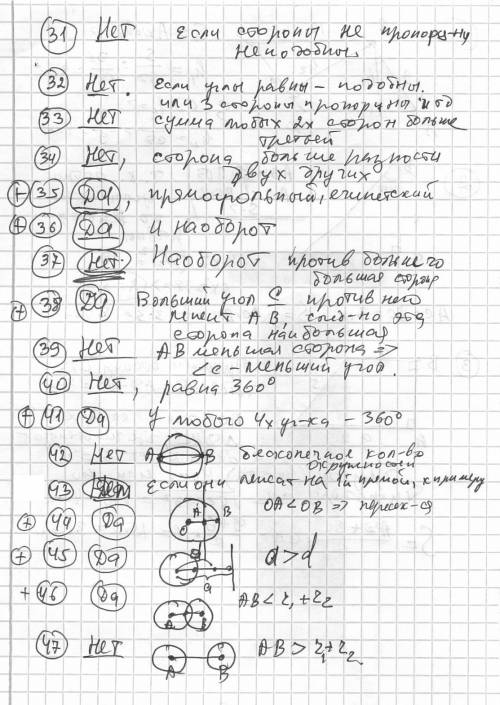 31 Нет Если стороны не пропорц-ны
неподобны.
32 Нет. Если углы равны - подобны.
или 3 стороны пропорц-ны
33 Нет сумма любых 2х сторон больше
третьей
34 Нет, сторона больше разности
двух других
+ 35 Да, прямоугольный, египетский
+ 36 Да и наоборот
37 Нет. Наоборот против большего
большая сторона
+ 38 Да Больший угол C против него
лежит AB, след-но эта
сторона наибольшая
39 Нет AB меньшая сторона =>
∠C - меньший угол.
40 Нет, равна 360°
+ 41 Да У любого 4х уг-ка - 360°
42 Нет A B бесконечное кол-во
окружностей
43 Если они лежат на 1й прямой, к примеру
+ 44 Да O A B OA < OB => пересек-ся
+ 45 Да a a > d
+ 46 Да A B AB < r1 + r2
47 Нет A B AB > r1 + r2.